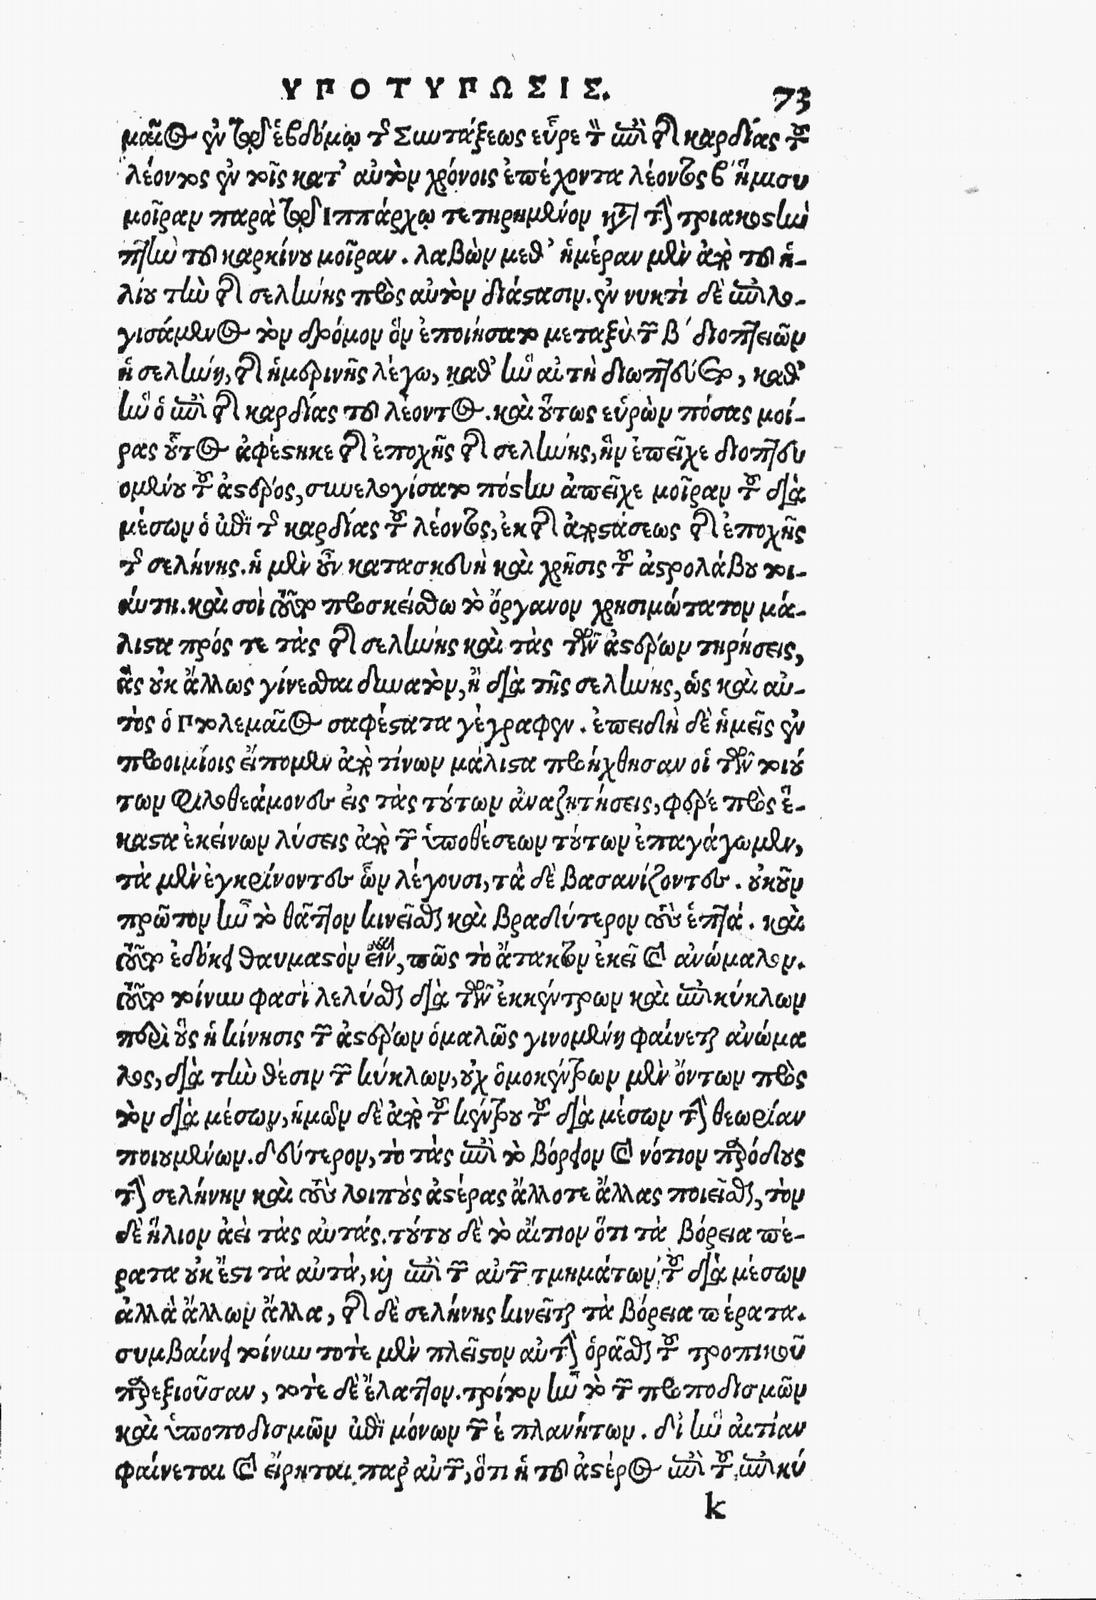 ΥΠΟΤΥΠΩΣΙΣ. 73
μαῖος ἐν τῷ ἑβδόμῳ τῆς Συντάξεως εὗρε τὸν ἐπὶ τῆς καρδίας τοῦ
λέοντος ἐν τοῖς κατ' αὐτὸν χρόνοις ἐπέχοντα λέοντος β' ἥμισυ
μοῖραν παρὰ τῷ Ἱππάρχῳ τετηρημένον κατὰ τὴν τριακοστὴν
πτὴν τοῦ καρκίνου μοῖραν. λαβὼν μεθ' ἡμέραν μὲν ἀπὸ τοῦ ἡ-
λίου τὴν τῆς σελήνης πρὸς αὐτὸν διάστασιν. ἐν νυκτὶ δὲ ἐπιλο-
γισάμενος τὸν δρόμον ὃν ἐποίησατο μεταξὺ τῶν β' διοπτειῶν
ἡ σελήνη, τῆς ἡμερινῆς λέγω, καθ' ἣν αὐτὴ διωπτεύετο, καθ'
ἣν ὁ ἐπὶ τῆς καρδίας τοῦ λέοντος. καὶ οὕτως εὑρὼν πόσας μοί-
ρας οὗτος ἀφέστηκε τῆς ἐποχῆς τῆς σελήνης, ἣν ἐπεῖχε διοπτευ
ομένου τοῦ ἀστέρος, συνελογίσατο πόστην ἀπεῖχε μοῖραν τοῦ διὰ
μέσων ὁ ἐπὶ τῆς καρδίας τοῦ λέοντος, ἐκ τῆς ἀποστάσεως τῆς ἐποχῆς
τῆς σελήνης. ἡ μὲν οὖν κατασκευὴ καὶ χρῆσις τοῦ ἀστρολάβου τοι-
άυτη. καὶ σοὶ τοῦτο προσκείσθω τὸ ὄργανον χρησιμώτατον μά-
λιστα πρός τε τὰς τῆς σελήνης καὶ τὰς τῶν ἀστέρων τηρήσεις,
ἃς οὐκ ἄλλως γίνεσθαι δυνατὸν, ἢ διὰ τῆς σελήνης, ὡς καὶ αὐ-
τὸς ὁ Πτολεμαῖος σαφέστατα γέγραφεν. ἐπειδὴ δὲ ἡμεῖς ἐν
προοιμίοις εἴπομεν ἀπὸ τίνων μάλιστα προήχθησαν οἱ τῶν τοιού
των φιλοθεάμονες εἰς τὰς τούτων ἀναζητήσεις, φέρε πρὸς ἕ-
καστα ἐκείνων λύσεις ἀπὸ τῶν ὑποθέσεων τούτων ἐπαγάγωμεν,
τὰ μὲν ἐγκρίνοντες ὧν λέγουσι, τὰ δὲ βασανίζοντες. οὐκοῦν
πρῶτον ἦν τὸ θᾶττον κινεῖσθαι καὶ βραδύτερον τοὺς ἑπτά. καὶ
τοῦτο ἐδόκει θαυμαστὸν εἶναι, πῶς τὸ ἄτακτον ἐκεῖ καὶ ἀνώμαλον.
τοῦτο τοίνυν φασὶ λελύσθαι διὰ τῶν ἐκκέντρων καὶ ἐπικύκλων
περὶ οὓς ἡ κίνησις τῶν ἀστέρων ὁμαλῶς γινομένη φαίνεται ἀνώμα
λος, διὰ τὴν θέσιν τῶν κύκλων, οὐχ ὁμοκέντρων μὲν ὄντων πρὸς
τὸν διὰ μέσων, ἡμῶν δὲ ἀπὸ τοῦ κέντρου τοῦ διὰ μέσων τὴν θεωρίαν
ποιουμένων. δεύτερον, τὸ τὰς ἐπὶ τὸ βόρειον καὶ νότιον προόδους
τὴν σελήνην καὶ τοὺς λοιποὺς ἀστέρας ἄλλοτε ἄλλας ποιεῖσθαι, τὸν
δὲ ἥλιον ἀεὶ τὰς αὐτάς. τούτου δὲ τὸ αἴτιον ὅτι τὰ βόρεια πέ-
ρατα οὐκ ἔστι τὰ αὐτὰ, καὶ ἐπὶ τῶν αὐτῶν τμημάτων τοῦ διὰ μέσων
ἀλλὰ ἄλλων ἄλλα, τῆς δὲ σελήνης κινεῖται τὰ βόρεια πέρατα.
συμβαίνει τοίνυν τοτὲ μὲν πλεῖστον αὐτὴν ὁρᾶσθαι τοῦ τροπικοῦ
προεξιοῦσαν, τοτὲ δὲ ἔλαττον. τρίτον ἦν τὸ τῶν προποδισμῶν
καὶ ὑποποδισμῶν ἐπὶ μόνων τῶν ε πλανήτων. δι' ἣν αἰτίαν
φαίνεται καὶ εἴρηται παρ' αὐτῶν, ὅτι ἡ τοῦ ἀστέρος ἐπὶ τοῦ ἐπικύ
k